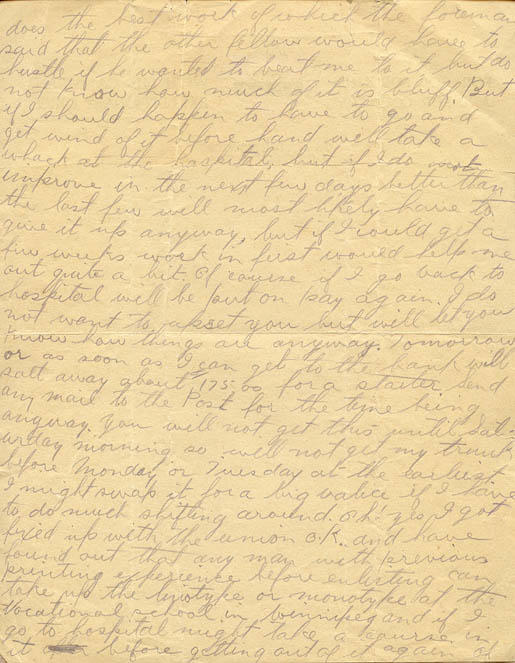 does the best work of which the foreman
said that the other fellow would have to
hustle if he wanted to beat me to it, but do
not know how much of it is bluff. But
if I should happen to have to go and
get wind of it before hand will take a
whack at the hospital, but if I do not
improve in the next few days better than
the last few will most likely have to
give it up anyway, but if I could get a
few weeks work in first would help me
out quite a bit. Of course if I go back to
hospital will be put on pay again. I do
not want to upset you but will let you
know how things are anyway. Tomorrow
or as soon as I can get to the bank will
salt away about 175.00 for a starter. Send
any mail to the Post for the time being
anyway. You will not get this until Sat-
urday morning so will not get my trunk
before Monday or Tuesday at the earliest
I might swap it for a big valice if I have
to do much shifting around. Oh! yes, I got
fixed up with the union O.K. and have
found out that any man with previous
printing experience before enlisting can
take up the linotype or monotype at the
vocational school in Winnipeg and if I
go to hospital might take a course in
it before getting out of it again. Of